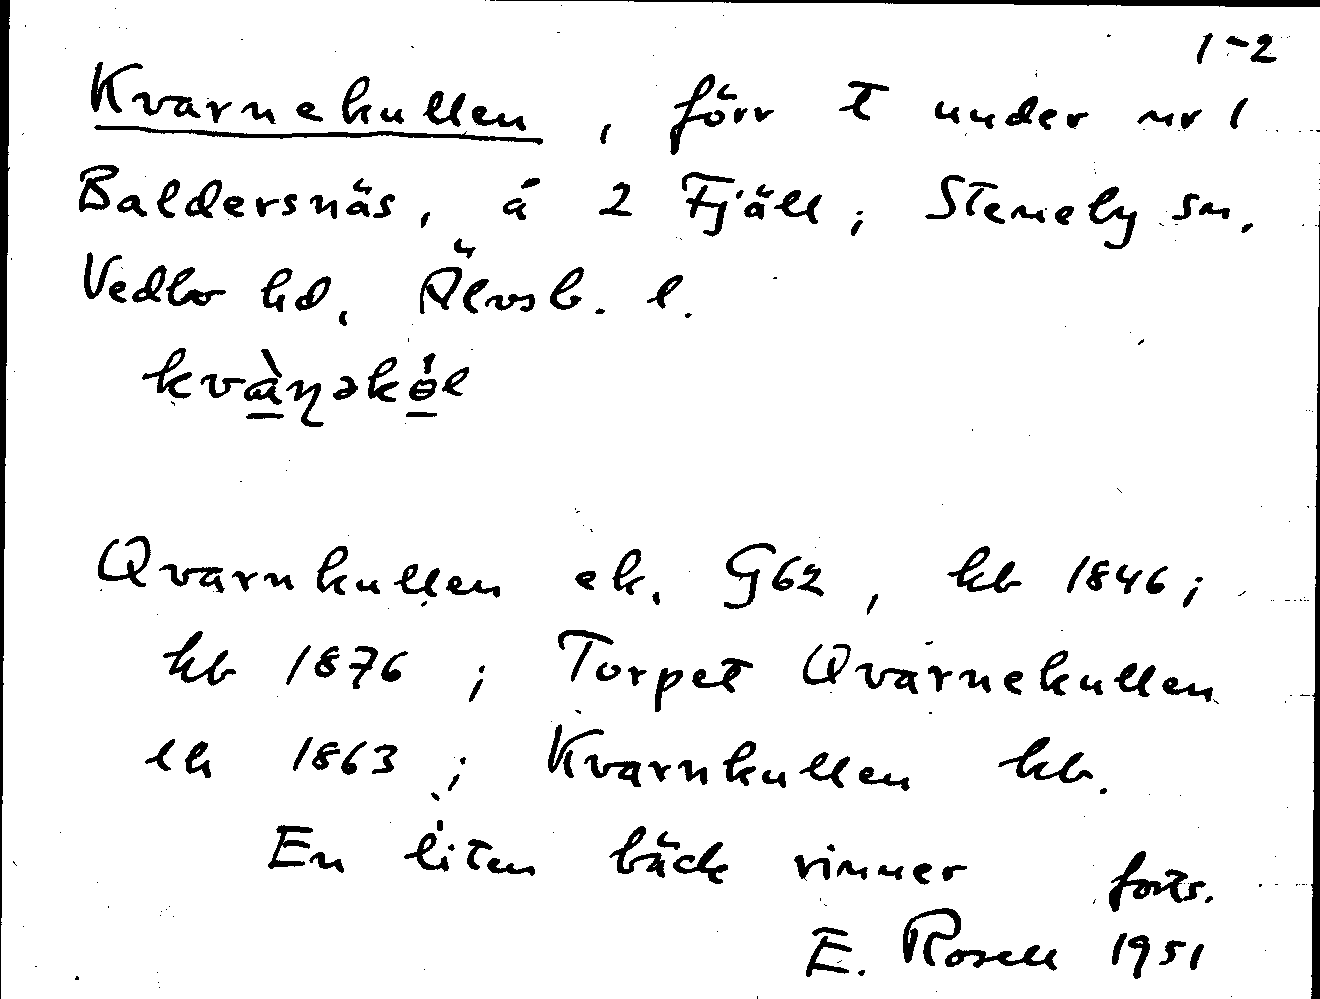 1-2
Kvarnekullen, förr t under nr 1
Baldersnäs, å 2 Fjäll; Steneby sn,
Vedbo hd, Älvsb. l.
kvàɳəkɵ́l
Qvarnkullen ek. G62, kb 1846;
kb 1876; Torpet Qvarnekullen
lh 1863; Kvarnkullen kb.
En liten bäck rinner forts.
E. Rosell 1951